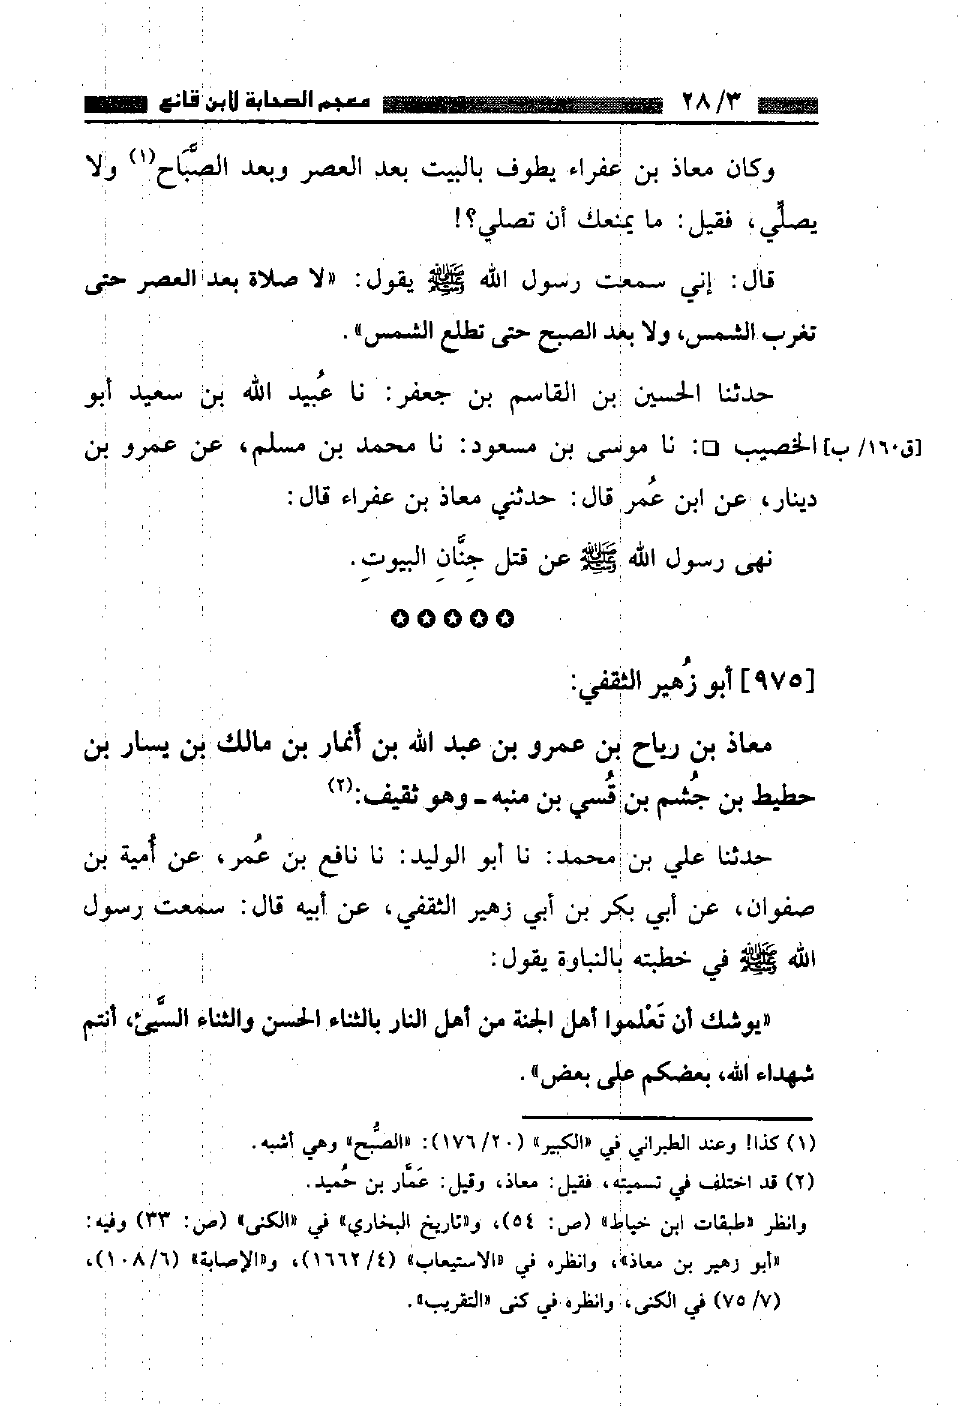 ٢٨/٣ معجم الصحابة لابن قانع
وكان معاذ بن عفراء يطوف بالبيت بعد العصر وبعد الصَّبَاح(١) ولا
يصلِّي، فقيل: ما يمنعك أن تصلي؟!
قال: إني سمعت رسول الله ﷺ يقول: «لا صلاة بعد العصر حتى
تغرب الشمس، ولا بعد الصبح حتى تطلع الشمس».
حدثنا الحسين بن القاسم بن جعفر: نا عُبيد الله بن سعيد أبو
[ق١٦٠/ ب] الخصيب □: نا موسى بن مسعود: نا محمد بن مسلم، عن عمرو بن
دينار، عن ابن عُمر قال: حدثني معاذ بن عفراء قال:
نهى رسول الله ﷺ عن قتل جِنَّانِ البيوتِ.
✪✪✪✪✪
[٩٧٥] أبو زُهير الثقفي:
معاذ بن رياح بن عمرو بن عبد الله بن أَنمار بن مالك بن يسار بن
حطيط بن جُشم بن قُسي بن منبه ـ وهو ثقيف:(٢)
حدثنا علي بن محمد: نا أبو الوليد: نا نافع بن عُمر، عن أُمية بن
صفوان، عن أبي بكر بن أبي زهير الثقفي، عن أبيه قال: سمعت رسول
الله ﷺ في خطبته بالنباوة يقول:
«يوشك أن تَعْلموا أهل الجنة من أهل النار بالثناء الحسن والثناء السَّيِئ، أنتم
شهداء الله، بعضكم على بعض».
(١) كذا! وعند الطبراني في «الكبير» (٢٠/ ١٧٦): «الصُّبح» وهي أشبه.
(٢) قد اختلف في تسميته، فقيل: معاذ، وقيل: عَمَّار بن حُميد.
وانظر «طبقات ابن خياط» (ص: ٥٤)، و«تاريخ البخاري» في «الكنى» (ص: ٣٣) وفيه:
«أبو زهير بن معاذ»، وانظره في «الاستيعاب» (٤/ ١٦٦٢)، و«الإصابة» (٦/ ١٠٨)،
(٧/ ٧٥) في الكنى، وانظره في كنى «التقريب».